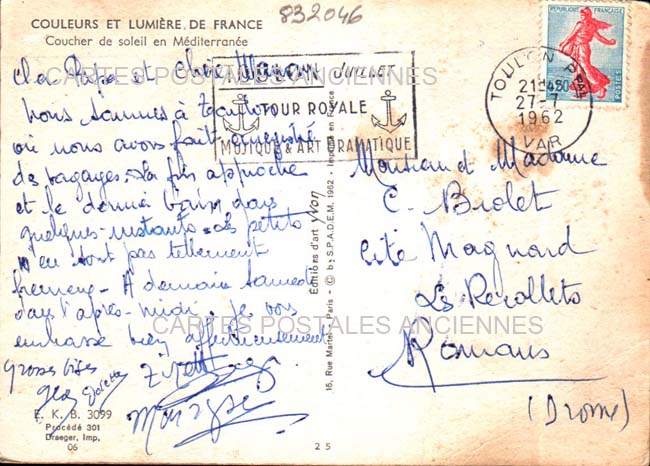 COULEURS ET LUMIÈRE DE FRANCE
Coucher de soleil en Méditerranée
832046
RÉPUBLIQUE FRANÇAISE
JUILLET
TOUR ROYALE
MUSIQUE & ART DRAMATIQUE
TOULON PPAL
21H30
27-7
1962
VAR
CARTES POSTALES ANCIENNES
Cher Papa et chère Maman
Nous sommes à Toulon
où nous avons fait enregistré
des bagages. La fin approche
et le dernier bain dans
quelques instants. Les petits
n'en sont pas tellement
A demain Samedi
dans l'après-midi. Je vous
embrasse bien affectueusement
Grosses bises
Monsieur et Madame
C. Briolet
Cité Magnard
Les Récollets
Romans
(Drome)
CARTES POSTALES ANCIENNES
Éditions d'art yvon
16, Rue Martel - Paris - © by S.P.A.D.E.M. 1962 - Imprimé en France
E. K. B. 3099
Procédé 301
Draeger, Imp.
06
25